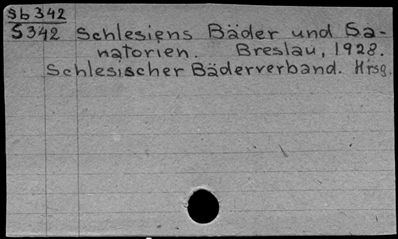 Sb 342
S 342 Schlesiens Bäder und Sa-
natorien. Breslau, 1928.
Schlesischer Bäderverband. Hrsg.